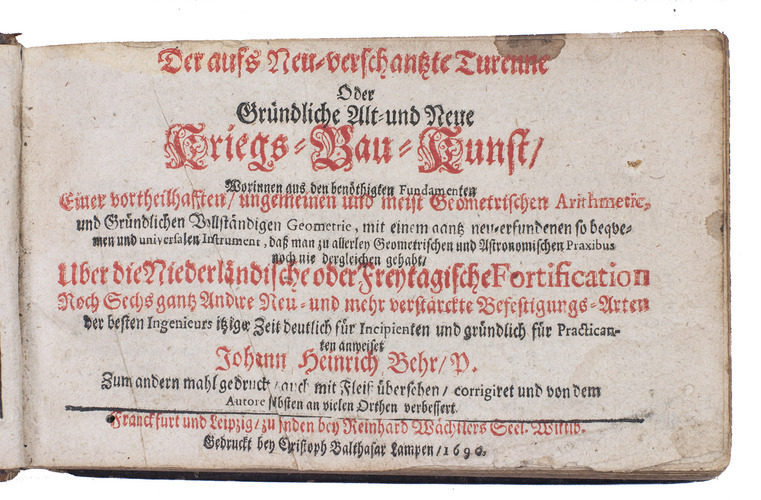 Der aufs Neu-verschantzte Turenne
Oder
Gründliche Alt- und Neue
Kriegs-Bau-Kunst/
Worinnen aus den benöthigten Fundamenten
Einer vortheilhafften/ ungemeinen und meist Geometrischen Arithmetic,
und Gründlichen Vollständigen Geometrie, mit einem gantz neu-erfundenen so beqve-
men und universalen Instrument, daß man zu allerley Geometrischen und Astronomischen Praxibus
noch nie dergleichen gehabt/
Uber die Niederländische oder Freytagische Fortification
Noch Sechs gantz Andre Neu- und mehr verstärckte Befestigungs-Arten
der besten Ingenieurs itziger Zeit deutlich für Incipienten und gründlich für Practican-
ten anweiset
Johann Heinrich Behr/ P.
Zum andern mahl gedruckt/ auch mit Fleiß übersehen/ corrigiret und von dem
Autore selbsten an vielen Orthen verbessert.
Franckfurt und Leipzig/ zu finden bey Reinhard Wächtlers Seel. Wittib.
Gedruckt bey Christoph Balthasar Lampen/ 1690.